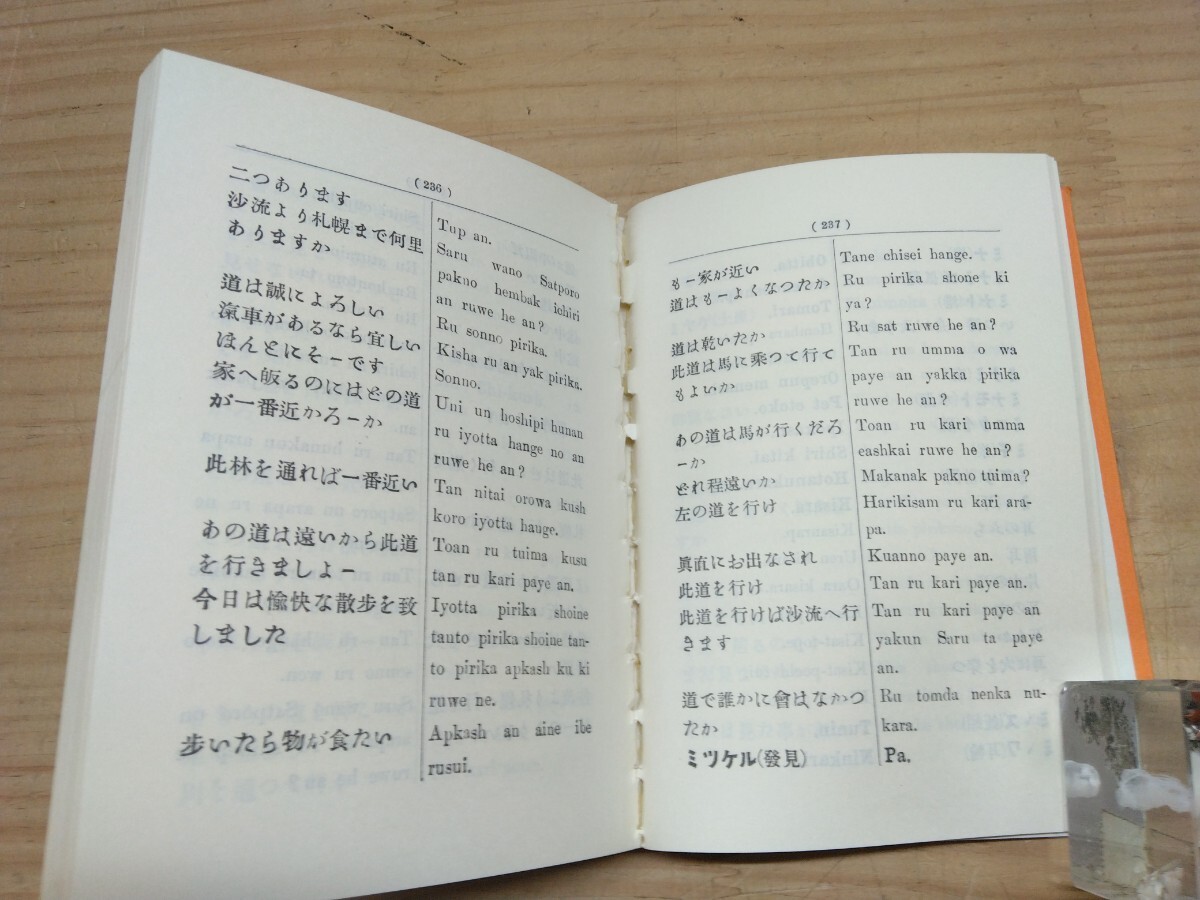 (236)
二つあります
沙流より札幌まで何里
ありますか
道は誠によろしい
滊車があるなら宜しい
ほんとにそーです
家へ皈るのにはどの道
が一番近かろーか
此林を通れば一番近い
あの道は遠いから此道
を行きましよー
今日は愉快な散歩を致
しました
歩いたら物が食たい
Tup an.
Saru wano Satporo
pakno hembak ichiri
an ruwe he an?
Ru sonno pirika.
Kisha ru an yak pirika.
Sonno.
Uni un hoshipi hunan
ru iyotta hange no an
ruwe he an?
Tan nitai orowa kush
koro iyotta hauge.
Toan ru tuima kusu
tan ru kari paye an.
Iyotta pirika shoine
tauto pirika shoine tan-
to pirika apkash ku ki
ruwe ne.
Apkash an aine ibe
rusui.
(237)
もー家が近い
道はもーよくなつたか
道は乾いたか
此道は馬に乘つて行て
もよいか
あの道は馬が行くだろ
ーか
どれ程遠いか
左の道を行け
眞直にお出なされ
此道を行け
此道を行けば沙流へ行
きます
道で誰かに會はなかつ
たか
ミツケル(發見)
Tane chisei hange.
Ru pirika shone ki
ya?
Ru sat ruwe he an?
Tan ru umma o wa
paye an yakka pirika
ruwe he an?
Toan ru kari umma
eashkai ruwe he an?
Makanak pakno tuima?
Harikisam ru kari ara-
pa.
Kuanno paye an.
Tan ru kari paye an.
Tan ru kari paye an
yakun Saru ta paye
an.
Ru tomda nenka nu-
kara.
Pa.